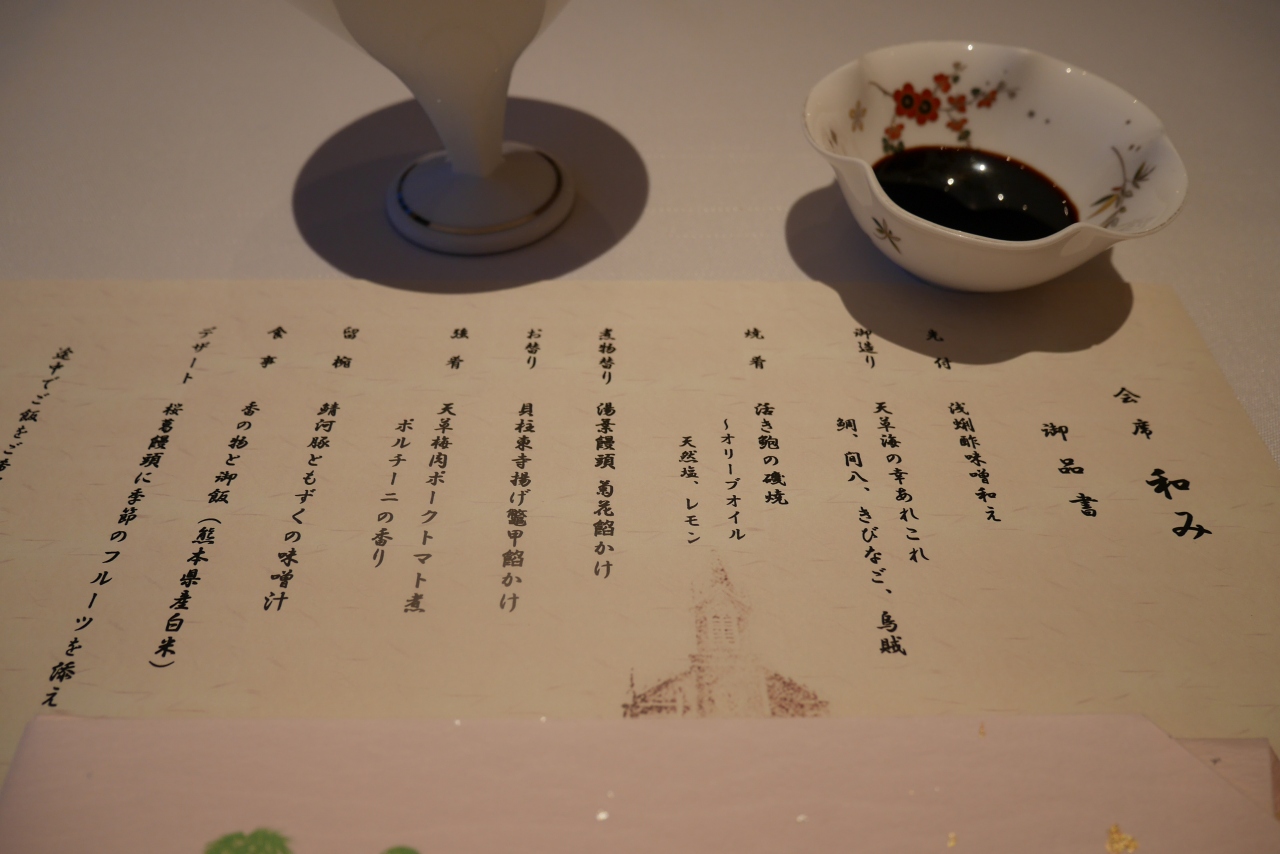 会席 和み
御品書
先付 浅蜊酢味噌和え
御造り 天草海の幸あれこれ
鯛、間八、きびなご、烏賊
焼肴 活き鮑の磯焼
~オリーブオイル
天然塩、レモン
煮物替り 湯葉饅頭 菊花餡かけ
お替り 貝柱東寺揚げ鼈甲餡かけ
強肴 天草梅肉ポークトマト煮
ポルチーニの香り
留椀 鯖河豚ともずくの味噌汁
食事 香の物と御飯(熊本県産白米)
デザート 桜葛饅頭に季節のフルーツを添え
途中でご飯をご